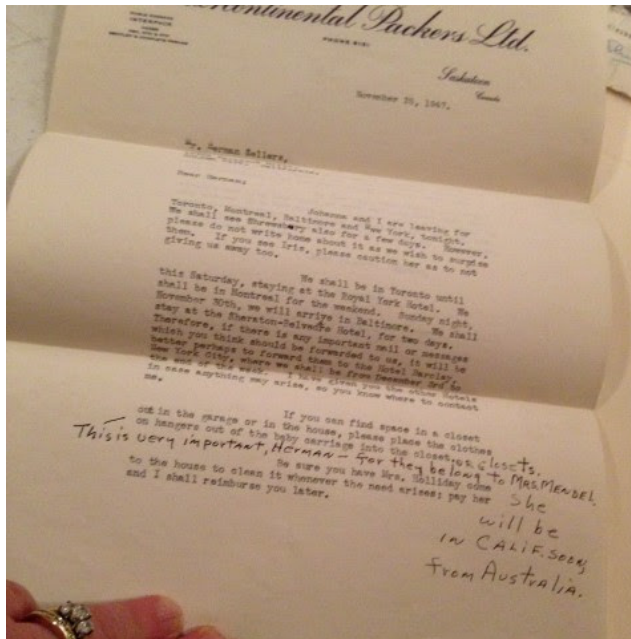 continental Packers Ltd.
INTERPACK
PHONE 8131
Saskatoon
Canada
November 25, 1947.
Mr. Herman Sellers,
Dear Herman;
Johanna and I are leaving for
Toronto, Montreal, Baltimore and New York, tonight.
We shall see Shrewsbury also for a few days. However,
please do not write home about it as we wish to surprise
them. If you see Iris, please caution her as to not
giving us away too.
We shall be in Toronto until
this Saturday, staying at the Royal York Hotel. We
shall be in Montreal for the weekend. Sunday night,
November 30th, we will arrive in Baltimore. We shall
stay at the Sheraton-Belvedre Hotel, for two days.
Therefore, if there is any important mail or messages
which you think should be forwarded to us, it will be
better perhaps to forward them to the Hotel Barclay,
New York City, where we shall be from December 3rd to
the end of the week. I have given you the other Hotels
in case anything may arise, so you know where to contact
me.
If you can find space in a closet
out in the garage or in the house, please place the clothes
on hangers out of the baby carriage into the closet, or closets.
This is very important, HERMAN - for they belong to MRS. MENDEL.
She
will be
IN CALIF. SOON,
from Australia.
Be sure you have Mrs. Holliday come
to the house to clean it whenever the need arises; pay her
and I shall reimburse you later.